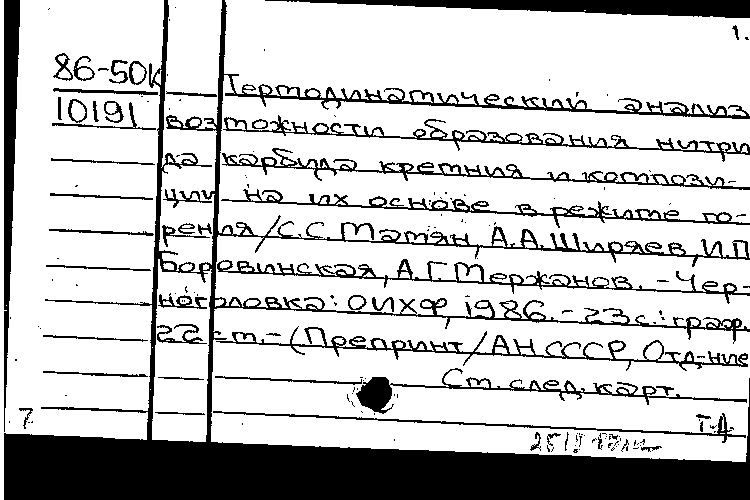 1.
86-50К
10191
Термодинамический анализ
возможности образования нитри
да карбида кремния и компози-
ции на их основе в режиме го-
рения/С.С.Мамян, А.А.Ширяев, И.П
Боровинская, А.Г.Мержанов. - Чер-
ноголовка: ОИХФ, 1986. - 23с.: граф.
22 см. - (Препринт/АН СССР, Отд-ние
См. след. карт.
7
Т-Д